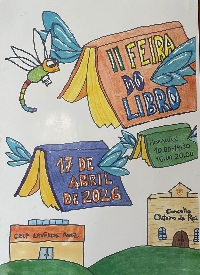 II FEIRA
DO
LIBRO
HORARIO:
10:00-14:00
16:00-20:00
17 DE
ABRIL
DE 2026
CEIP LAVERDE RUIZ
Concello
Outeiro de Rei